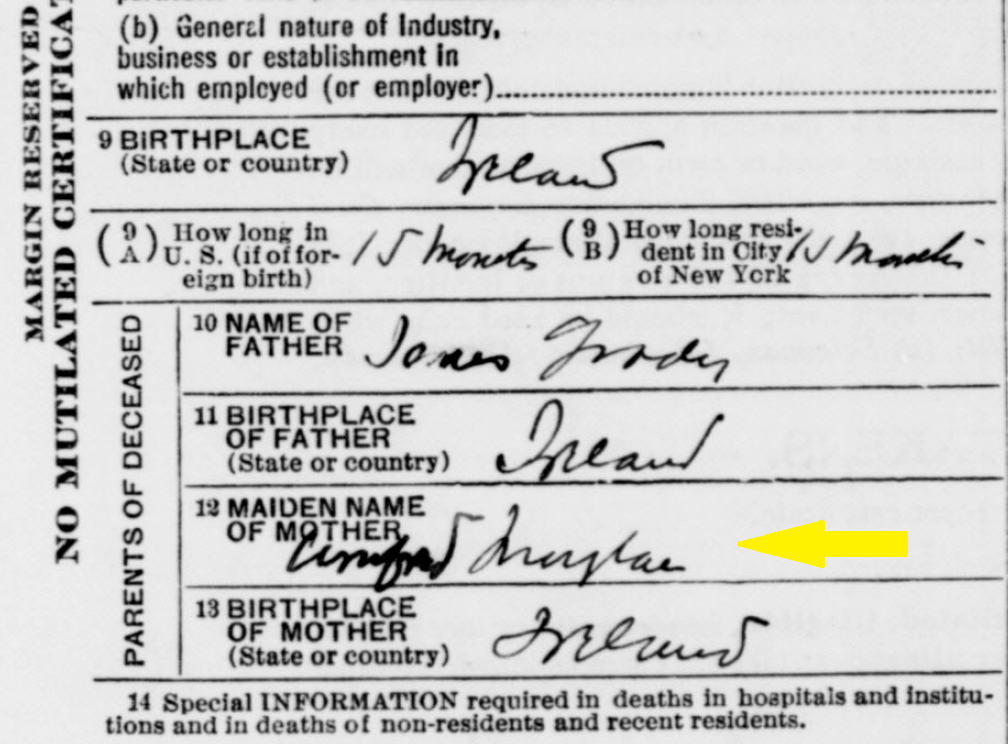 MARGIN RESERVED
NO MUTILATED CERTIFICAT
(b) General nature of Industry,
business or establishment in
which employed (or employer)
9 BIRTHPLACE
(State or country)
Ireland
(9 A) How long in
U. S. (if of for-
eign birth)
15 months
(9 B) How long resi-
dent in City
of New York
15 months
PARENTS OF DECEASED
10 NAME OF
FATHER
James Grady
11 BIRTHPLACE
OF FATHER
(State or country)
Ireland
12 MAIDEN NAME
OF MOTHER
13 BIRTHPLACE
OF MOTHER
(State or country)
Ireland
14 Special INFORMATION required in deaths in hospitals and institu-
tions and in deaths of non-residents and recent residents.